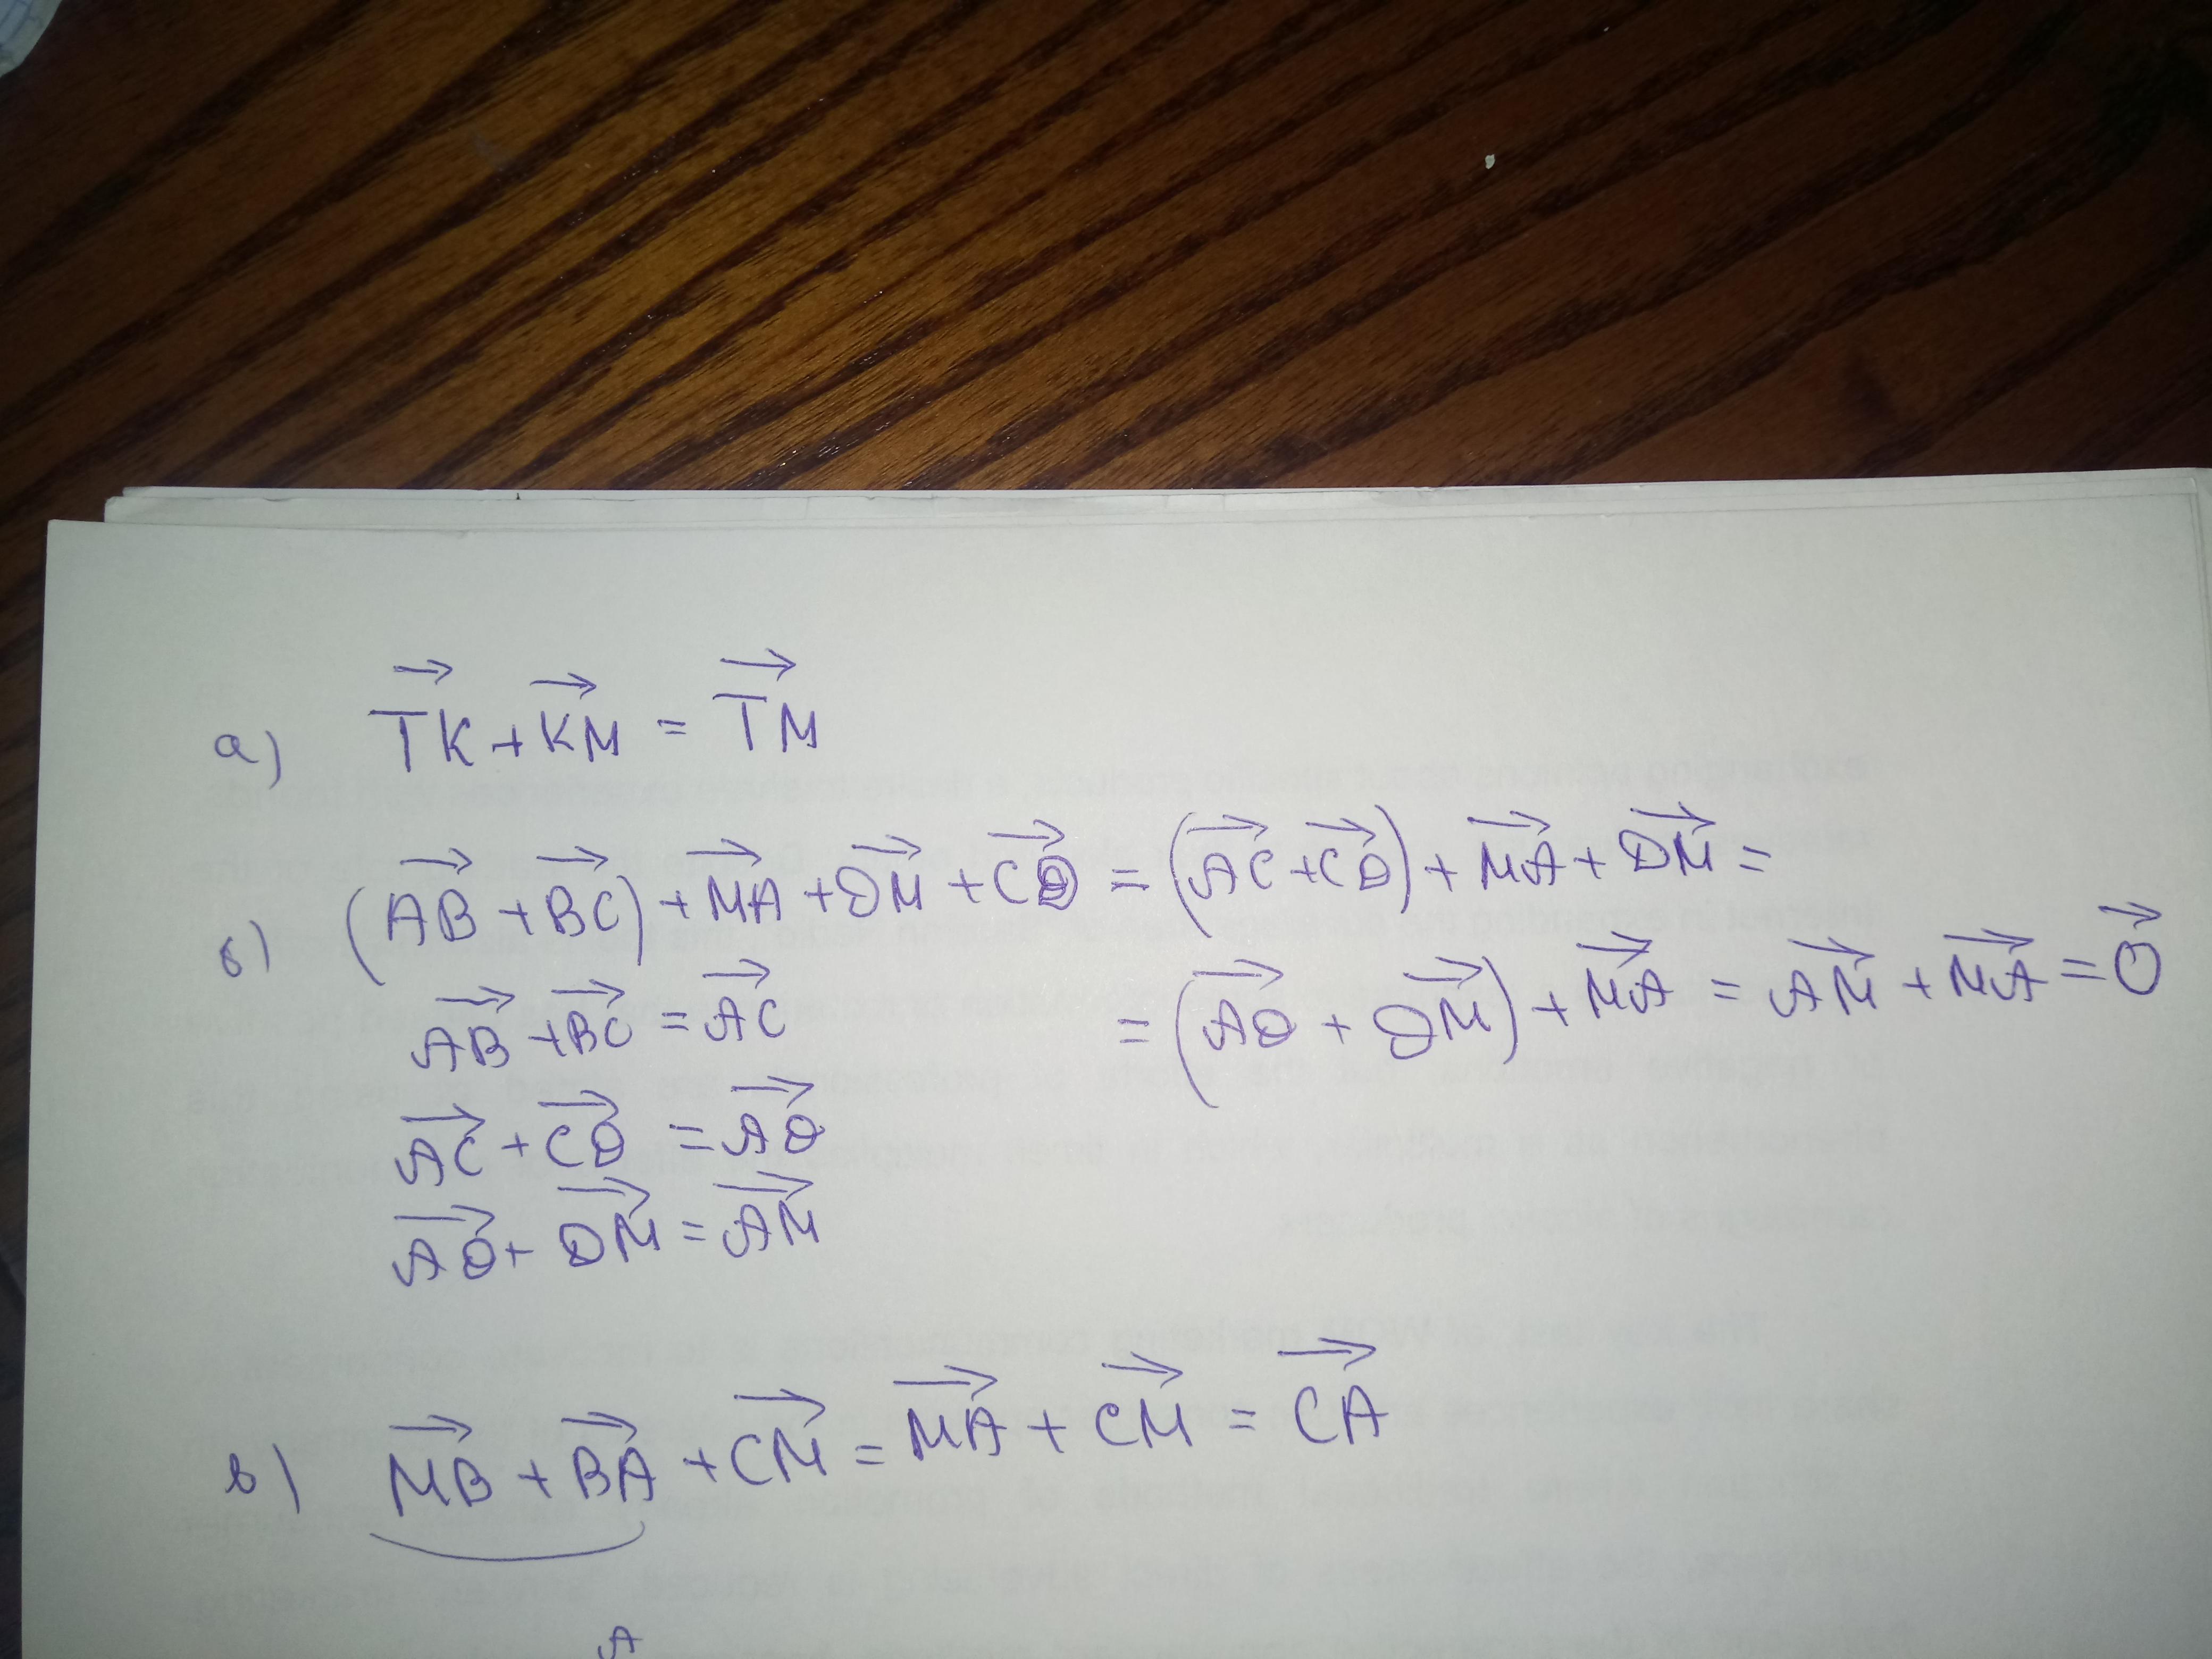 а) TK + KM = TM
б) (AB + BC) + MA + DM + CD = (AC + CD) + MA + DM =
= (AD + DM) + MA = AM + MA = 0
AB + BC = AC
AC + CD = AD
AD + DM = AM
в) MB + BA + CM = MA + CM = CA
A